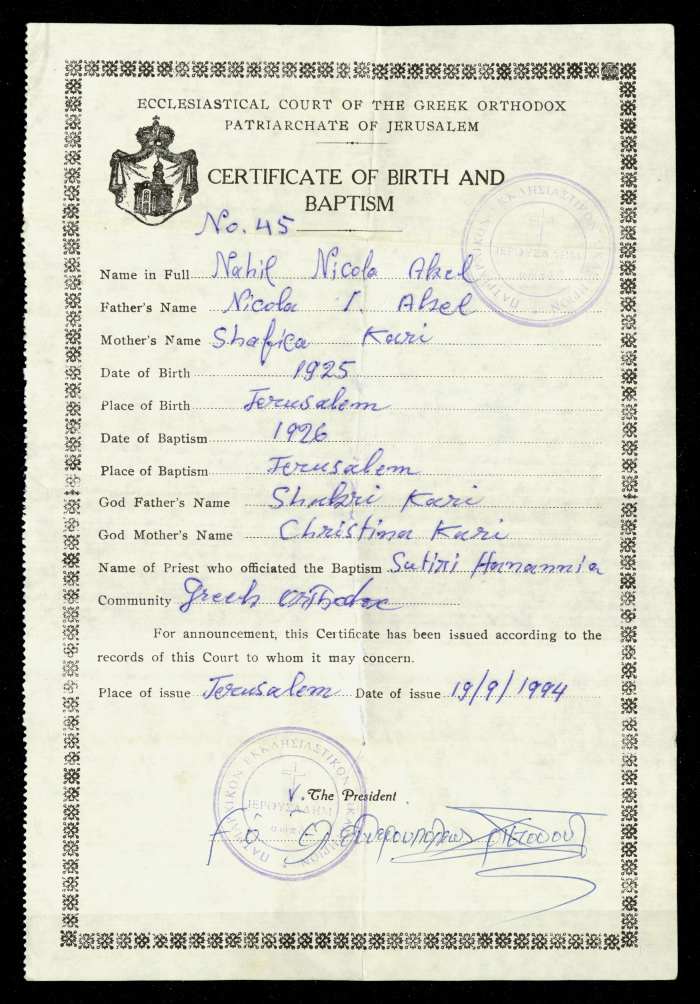 ECCLESIASTICAL COURT OF THE GREEK ORTHODOX
PATRIARCHATE OF JERUSALEM
CERTIFICATE OF BIRTH AND
BAPTISM
No. 45
ΠΑΤΡΙΑΡΧΙΚΟΝ ΕΚΚΛΗΣΙΑΣΤΙΚΟΝ
ΙΕΡΟΥΣΑΛΗΜ
Name in Full Nahil Nicola Akel
Father's Name Nicola I. Akel
Mother's Name Shafica Kari
Date of Birth 1925
Place of Birth Jerusalem
Date of Baptism 1926
Place of Baptism Jerusalem
God Father's Name Shukri Kari
God Mother's Name Christina Kari
Name of Priest who officiated the Baptism Sutiri Hanannia
Community Greek Orthodox
For announcement, this Certificate has been issued according to the
records of this Court to whom it may concern.
Place of issue Jerusalem Date of issue 19/9/1994
ΠΑΤΡΙΑΡΧΙΚΟΝ ΕΚΚΛΗΣΙΑΣΤΙΚΟΝ
V. The President
ΙΕΡΟΥΣΑΛΗΜ